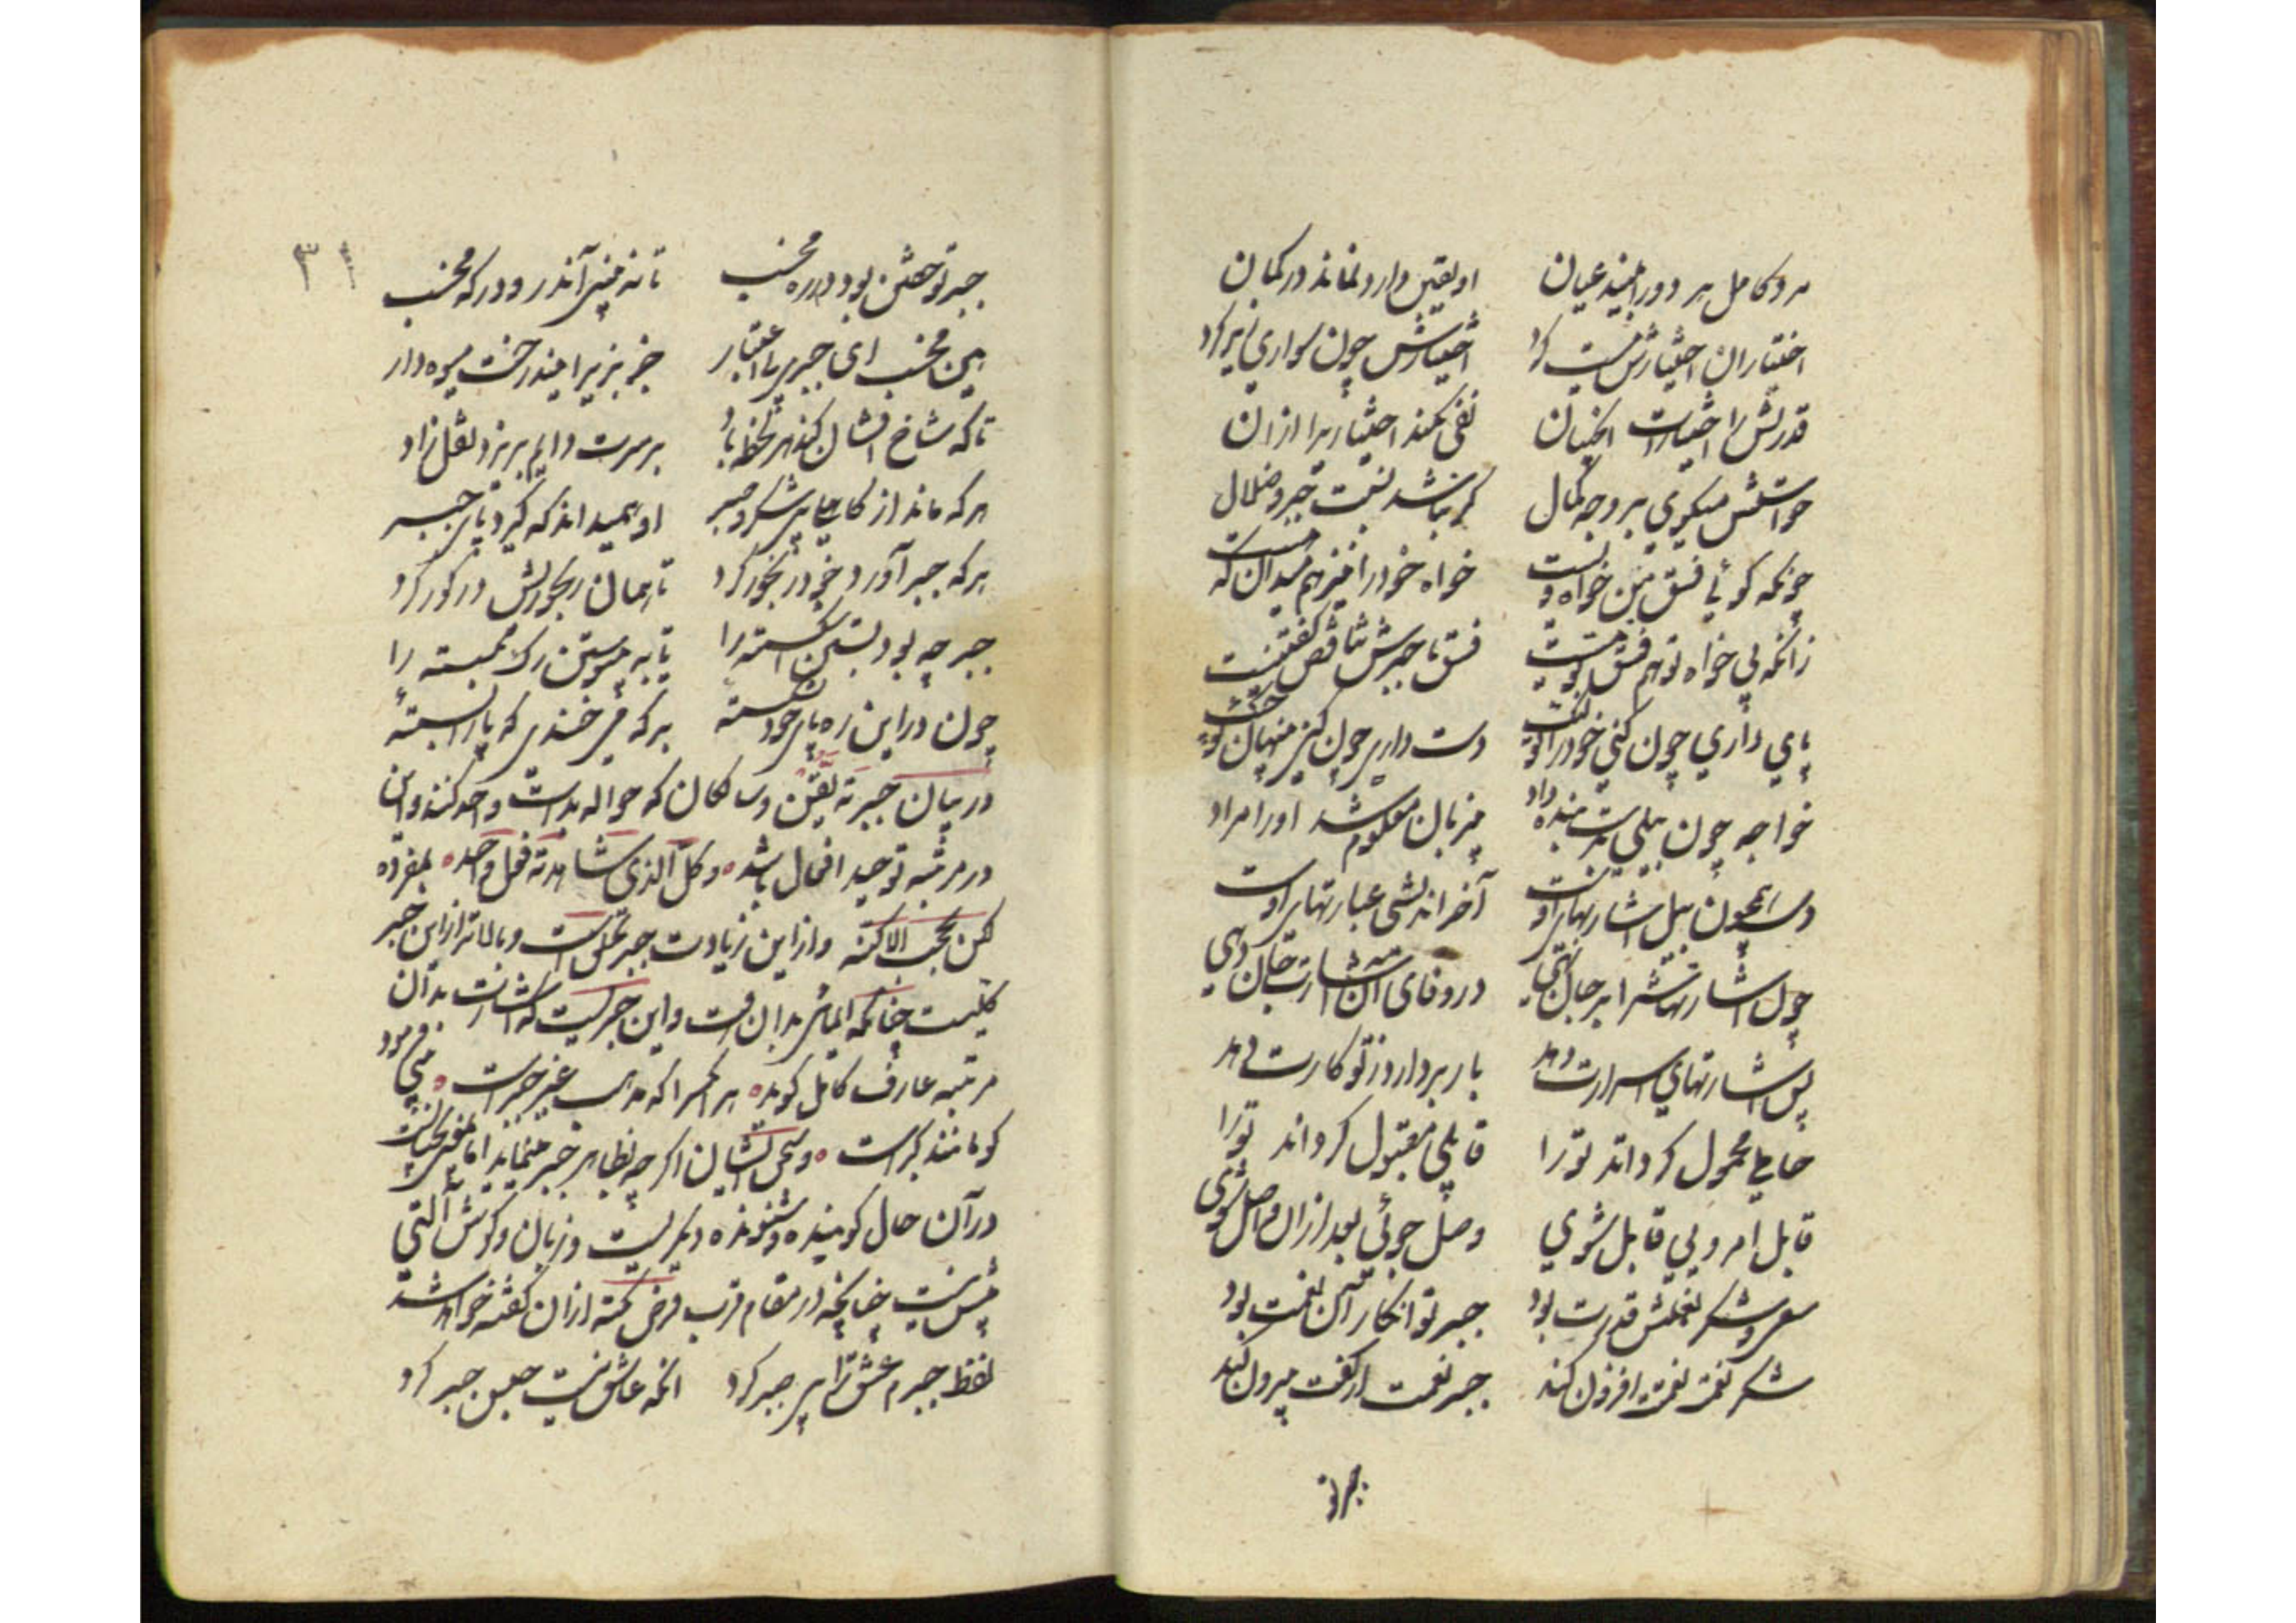 مرد کامل هر دو را بیند عیان او یقین دارد نماند در گمان
اختیار آن اختیارش هست کرد اختیارش چون سواری زیر کرد
قدرتش را اختیارات آنچنان نفی نکند اختیاری را از آن
خواستش میگوی بر وجه کمال که نباشد نسبت جبر و ضلال
چونکه گوئی فسق من خواه ویست خواه خود را نیز هم میدان که هست
زانکه بی خواه تو هم فسق تو نیست فسق با جبرش تناقض گفتنیست
پای داری چون کنی خود را تو لنگ دست داری چون کنی پنهان تو چنگ
خواجه چون بیلی بدست بنده داد بی زبان معلوم شد او را مراد
دست همچون بیل اشارتهای اوست آخر اندیشی عبارتهای اوست
چون اشارتهاش را بر جان نهی در وفای آن اشارت جان دهی
پس اشارتهای اسرارت دهد بار بردارد ز تو کارت دهد
حاملی محمول گرداند تو را قابلی مقبول گرداند تو را
قابل امر ویی قابل شوی وصل جوئی بعد از آن واصل شوی
سعی و شکر نعمتش قدرت بود جبر تو انکار آن نعمت بود
شکر نعمت نعمتت افزون کند جبر نعمت از کفت بیرون کند
جبر تو
۳۱
جبر تو خفتن بود در ره مخسب تا نه بینی آن در و درگه مخسب
هین مخسب ای جبری بی اعتبار جز بزیر آن درخت میوه دار
تا که شاخ افشان کند هر لحظه باد بر سرت دایم بریزد نقل و زاد
هر که ماند از کاهلی بی شکر و صبر او همیداند که گیرد پای جبر
هر که جبر آورد خود رنجور کرد تا همان رنجوریش در گور کرد
جبر چه بود بستن اشکسته را تا به پیوستن رگ بگسسته را
چون در این ره پای خود نشکسته بر که می خندی که پا را بسته
در بیان جبر که حواله بذات واحد کنند و این
در مرتبه توحید افعال باشد و کل الذی شاهدته فعل واحد بمفرده
لکن بحجب الاکنة و از این زیادت جبر است و بالاتر از این جبر
کلیست چنانکه ایمائی بدان رفت و این جبریست که اشارت بدان
مرتبه عارف کامل گوید هر آنکس را که مذهب غیر جبر است نبی فرمود
کو مانند گبر است و سخن ایشان اگر چه بظاهر جبر مینماید اما
در آن حال گوینده و شنونده دیگریست و زبان و گوش آلتی
بیش نیست چنانچه در مقام قرب فرض نکته از آن گفته خواهد شد
لفظ جبرم عشق را بی صبر کرد آنکه عاشق نیست حبس جبر کرد